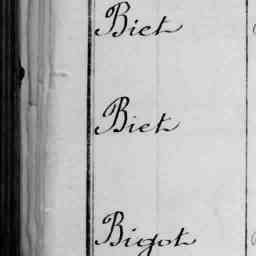 Biet
Biet
Bigot